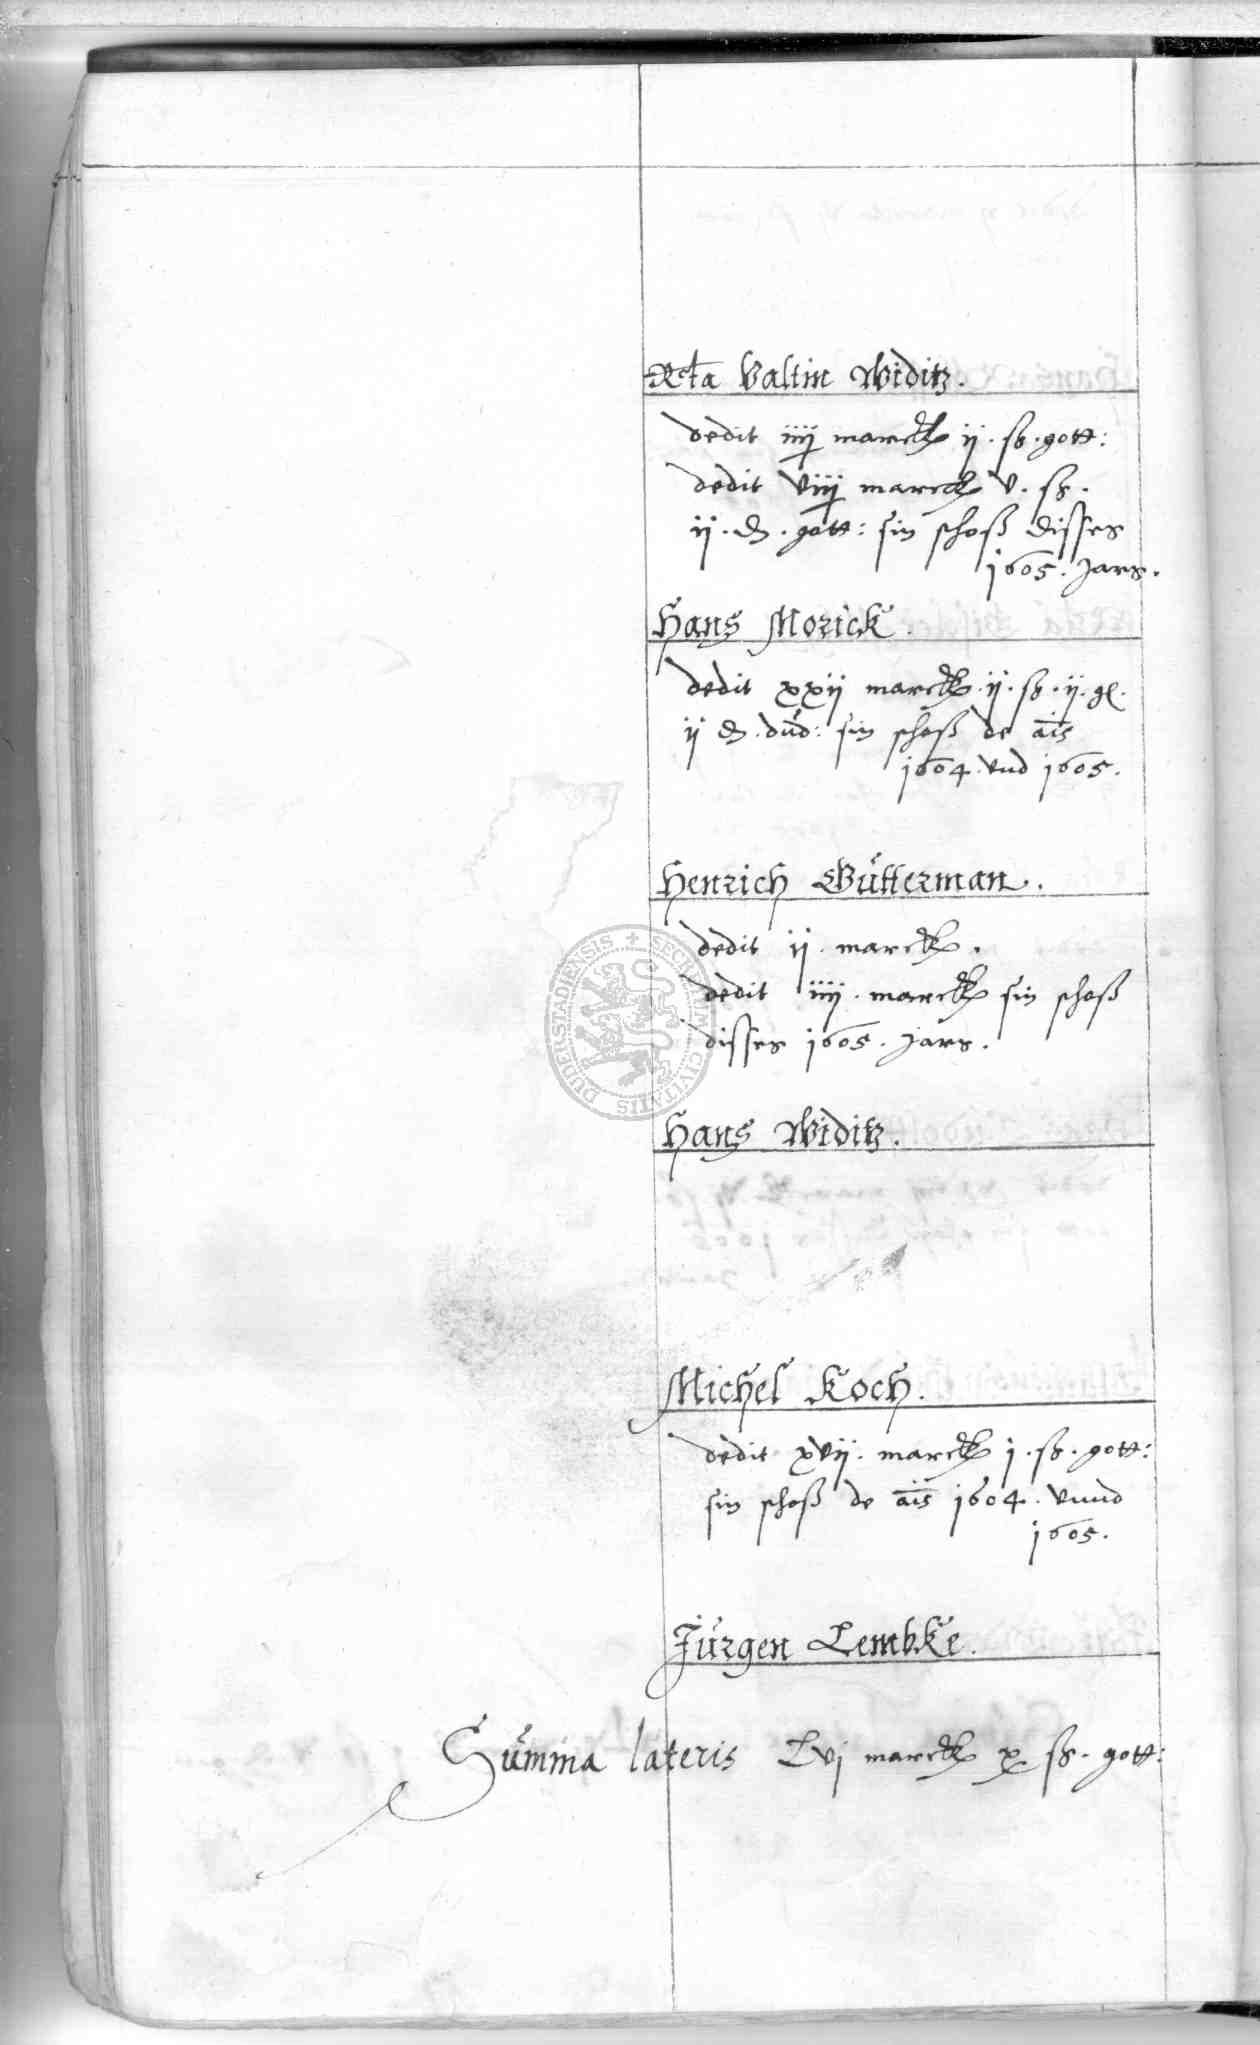 Rta Valtin Widitz.
dedit iiij marck ii. ß. gott:
dedit viij marck v. ß.
ii. d. gott: sin schoß disses
1605. Jars.
Hans Morick.
dedit xxii marck. ii. ß. ii. gl.
ii d. dud: sin schoß de ais
1604. vnd 1605.
Henrich Gütterman.
dedit ii. marck.
dedit iiij. marck sin schoß
disses 1605. Jars.
Hans Widitz.
Michel Koch.
dedit xvii. marck j. ß. gott:
sin schoß de ais 1604. vnnd
1605.
Jürgen Lembke.
Summa lateris Lvj marck x ß. gott:
SECRETUM CIVITATIS DUDERSTADIENSIS